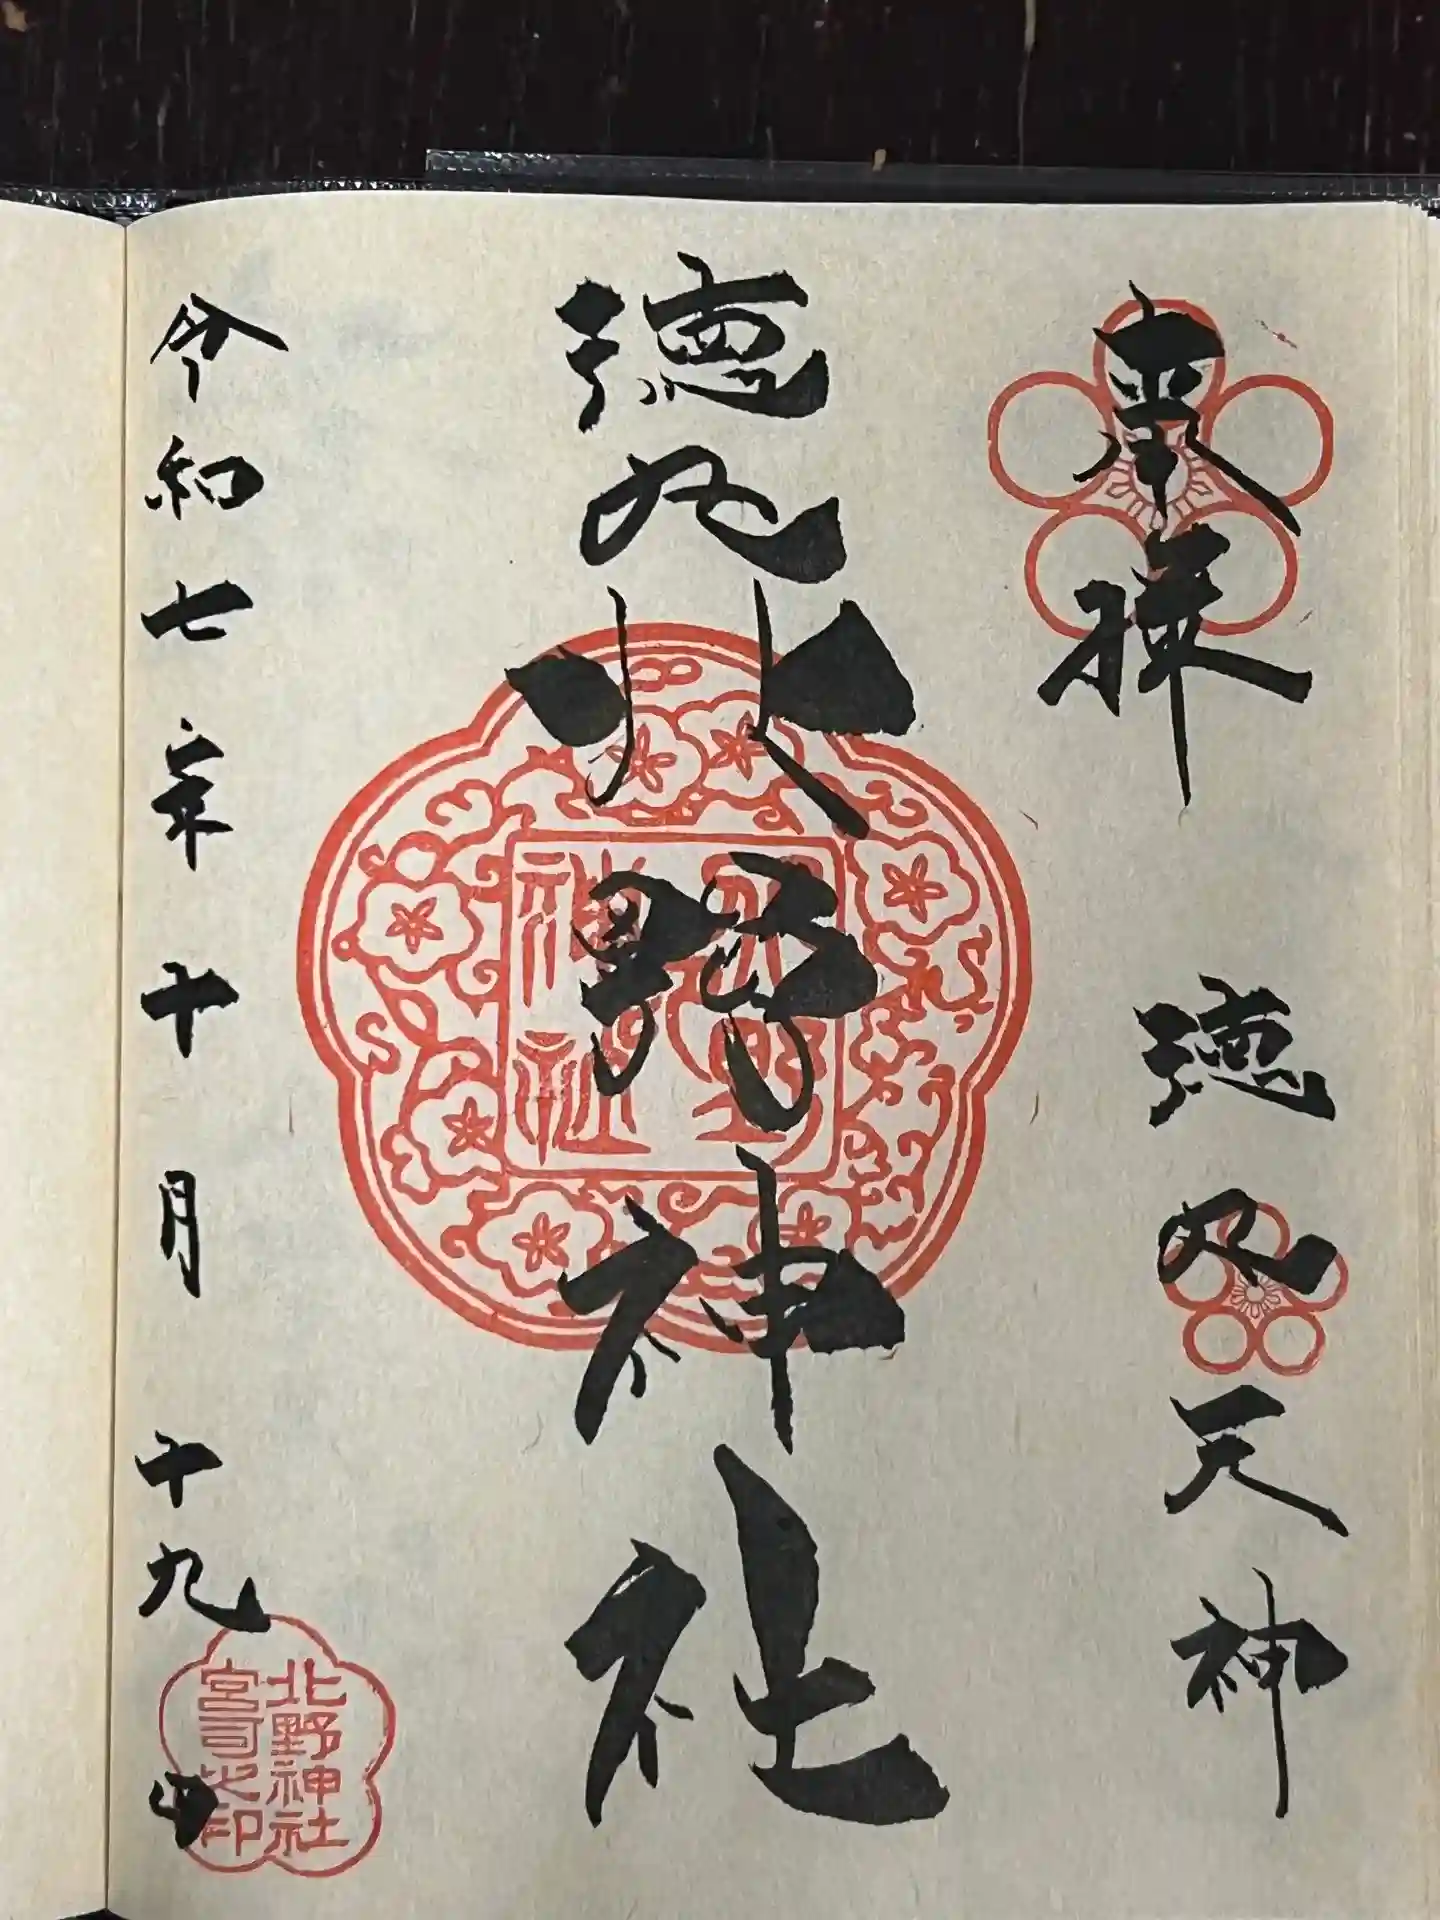 奉拝
徳丸天神
徳丸北野神社
北野
神社
令和七年十月十九日
北野神社
宮司之印